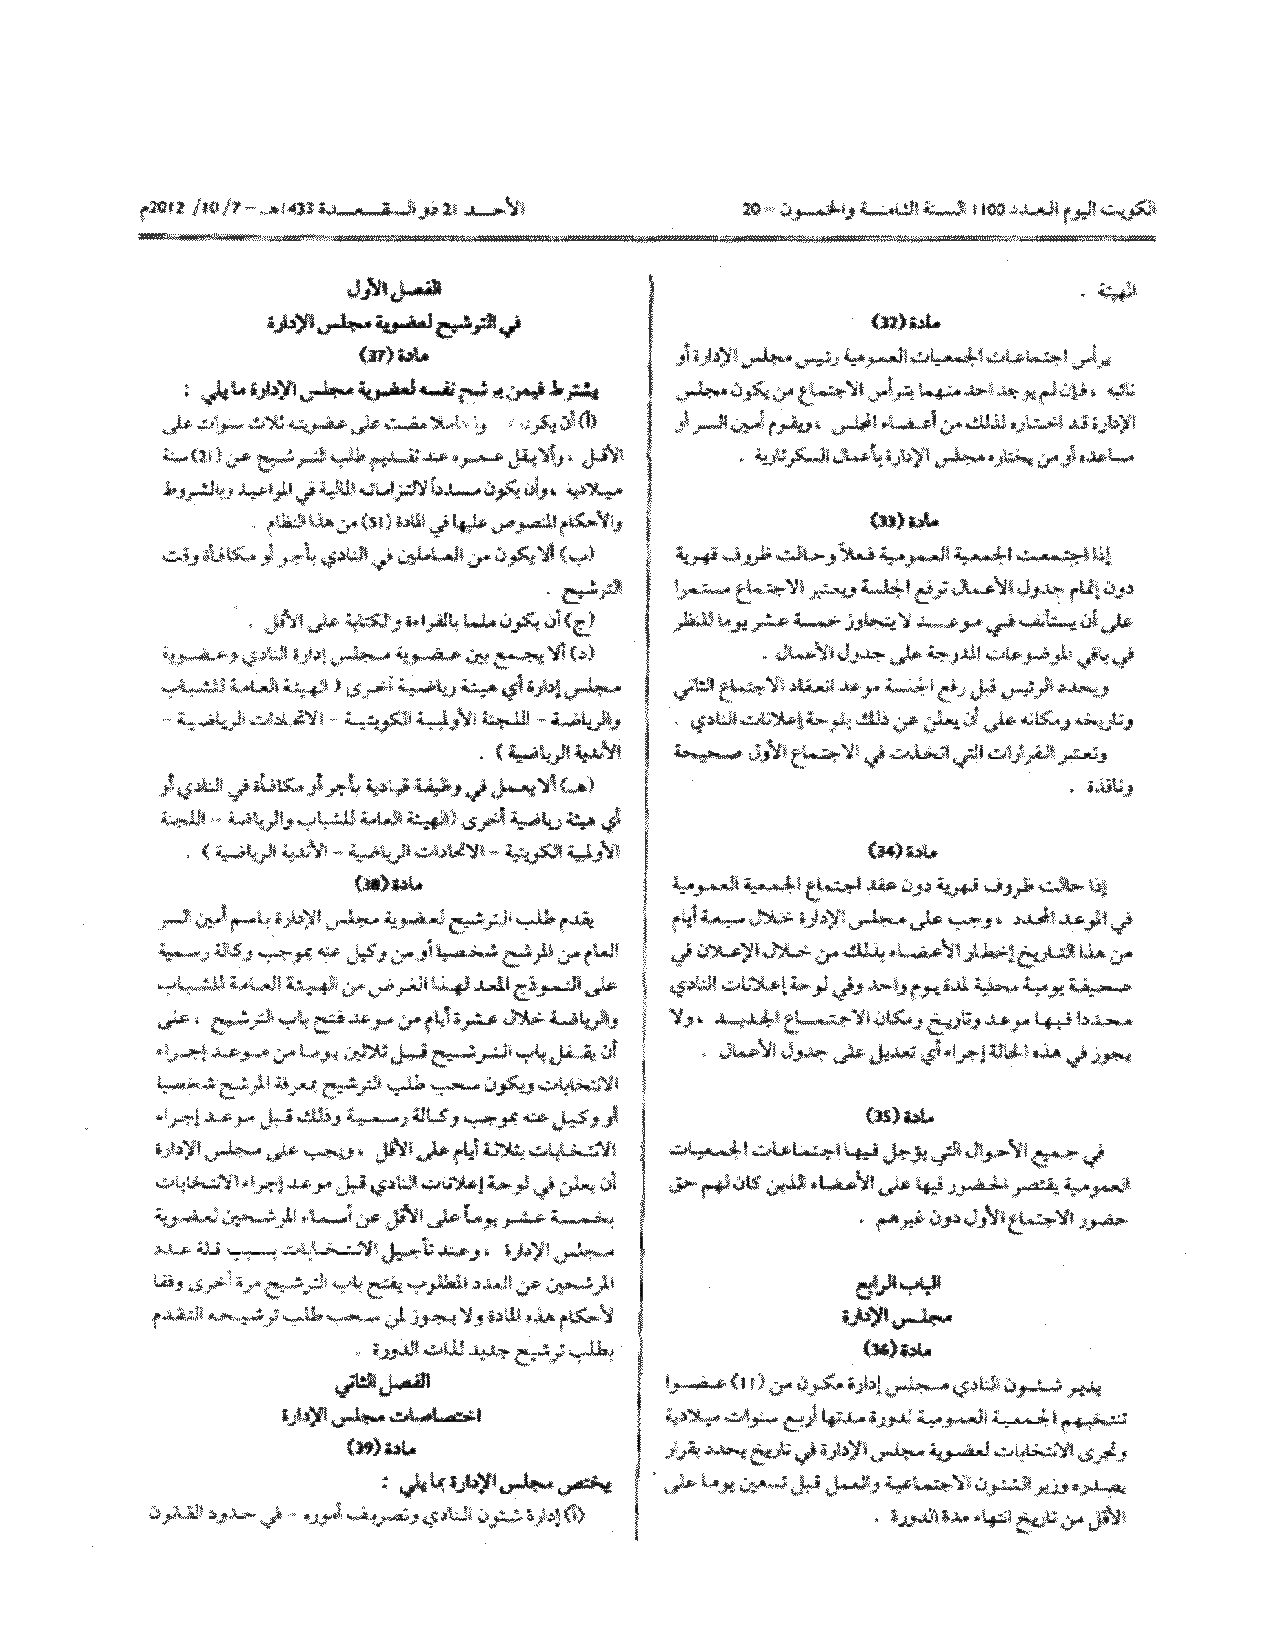 الكويت اليوم العدد 1100 السنة الثامنة والخمسون – 20
الأحد 21 ذو القعدة 1433هـ – 7/ 10/ 2012م
الهيئة .
مادة (32)
يرأس اجتماعات الجمعيات العمومية رئيس مجلس الإدارة أو
نائبه ، فإن لم يوجد احد منهما يترأس الاجتماع من يكون مجلس
الإدارة قد اختاره لذلك من أعضاء المجلس ، ويقوم أمين السر أو
مساعده أو من يختاره مجلس الإدارة بأعمال السكرتارية .
مادة (33)
إذا اجتمعت الجمعية العمومية فعلاً وحالت ظروف قهرية
دون إتمام جدول الأعمال ترفع الجلسة ويعتبر الاجتماع مستمرا
على أن يستأنف في موعد لا يتجاوز خمسة عشر يوما للنظر
في باقي الموضوعات المدرجة على جدول الأعمال .
ويحدد الرئيس قبل رفع الجلسة موعد انعقاد الاجتماع الثاني
وتاريخه ومكانه على أن يعلن عن ذلك بلوحة إعلانات النادي .
وتعتبر القرارات التي اتخذت في الاجتماع الأول صحيحة
ونافذة .
مادة (34)
إذا حالت ظروف قهرية دون عقد اجتماع الجمعية العمومية
في الموعد المحدد ، وجب على مجلس الإدارة خلال سبعة أيام
من هذا التاريخ إخطار الأعضاء بذلك من خلال الإعلان في
صحيفة يومية محلية لمدة يوم واحد وفي لوحة إعلانات النادي
محددا فيها موعد وتاريخ ومكان الاجتماع الجديد ، ولا
يجوز في هذه الحالة إجراء أي تعديل على جدول الأعمال .
مادة (35)
في جميع الأحوال التي يؤجل فيها اجتماعات الجمعيات
العمومية يقتصر الحضور فيها على الأعضاء الذين كان لهم حق
حضور الاجتماع الأول دون غيرهم .
الباب الرابع
مجلس الإدارة
مادة (36)
يدير شئون النادي مجلس إدارة مكون من (11) عضوا
تنتخبهم الجمعية العمومية لدورة مدتها أربع سنوات ميلادية
وتجرى الانتخابات لعضوية مجلس الإدارة في تاريخ يحدد بقرار
يصدره وزير الشئون الاجتماعية والعمل قبل تسعين يوما على
الأقل من تاريخ انتهاء مدة الدورة .
الفصل الأول
في الترشيح لعضوية مجلس الإدارة
مادة (37)
يشترط فيمن يرشح نفسه لعضوية مجلس الإدارة ما يلي :
(أ) أن يكون مضت على عضويته ثلاث سنوات على
الأقل ، وألا يقل عمره عند تقديم طلب الترشيح عن (21) سنة
ميلادية ، وأن يكون مسدداً لالتزاماته المالية في المواعيد وبالشروط
والأحكام المنصوص عليها في المادة (51) من هذا النظام .
(ب) ألا يكون من العاملين في النادي بأجر أو مكافأة وقت
الترشيح .
(ج) أن يكون ملما بالقراءة والكتابة على الأقل .
(د) ألا يجمع بين عضوية مجلس إدارة النادي وعضوية
مجلس إدارة أي هيئة رياضية أخرى ( الهيئة العامة للشباب
والرياضة – اللجنة الأولمبية الكويتية – الاتحادات الرياضية –
الأندية الرياضية ) .
(هـ) ألا يعمل في وظيفة قيادية بأجر أو مكافأة في النادي أو
أي هيئة رياضية أخرى (الهيئة العامة للشباب والرياضة – اللجنة
الأولمبية الكويتية – الاتحادات الرياضية – الأندية الرياضية ) .
مادة (38)
يقدم طلب الترشيح لعضوية مجلس الإدارة باسم أمين السر
العام من المرشح شخصيا أو من وكيل عنه بموجب وكالة رسمية
على النموذج المعد لهذا الغرض من الهيئة العامة للشباب
والرياضة خلال عشرة أيام من موعد فتح باب الترشيح ، على
أن يقفل باب الترشيح قبل ثلاثين يوما من موعد إجراء
الانتخابات ويكون سحب طلب الترشيح بمعرفة المرشح شخصيا
أو وكيل عنه بموجب وكالة رسمية وذلك قبل موعد إجراء
الانتخابات بثلاثة أيام على الأقل ، ويجب على مجلس الإدارة
أن يعلن في لوحة إعلانات النادي قبل موعد إجراء الانتخابات
بخمسة عشر يوماً على الأقل عن أسماء المرشحين لعضوية
مجلس الإدارة ، وعند تأجيل الانتخابات بسبب قلة عدد
المرشحين عن العدد المطلوب يفتح باب الترشيح مرة أخرى وفقا
لأحكام هذه المادة ولا يجوز لمن سحب طلب ترشيحه التقدم
بطلب ترشيح جديد لذات الدورة .
الفصل الثاني
اختصاصات مجلس الإدارة
مادة (39)
يختص مجلس الإدارة بما يلي :
(أ) إدارة شئون النادي وتصريف أموره – في حدود القانون